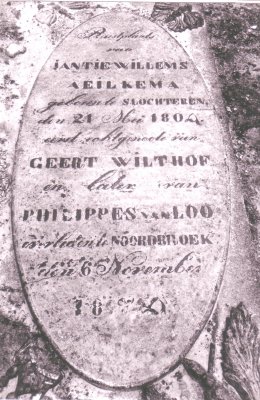 Rustplaats
van
JANTJE WILLEMS
AEILKEMA
geboren te SLOCHTEREN,
den 21 1804,
eerst echtgenoote van
GEERT WILTHOF
en later van
PHILIPPES VAN LOO
overleden te NOORDBROEK
den 6 November